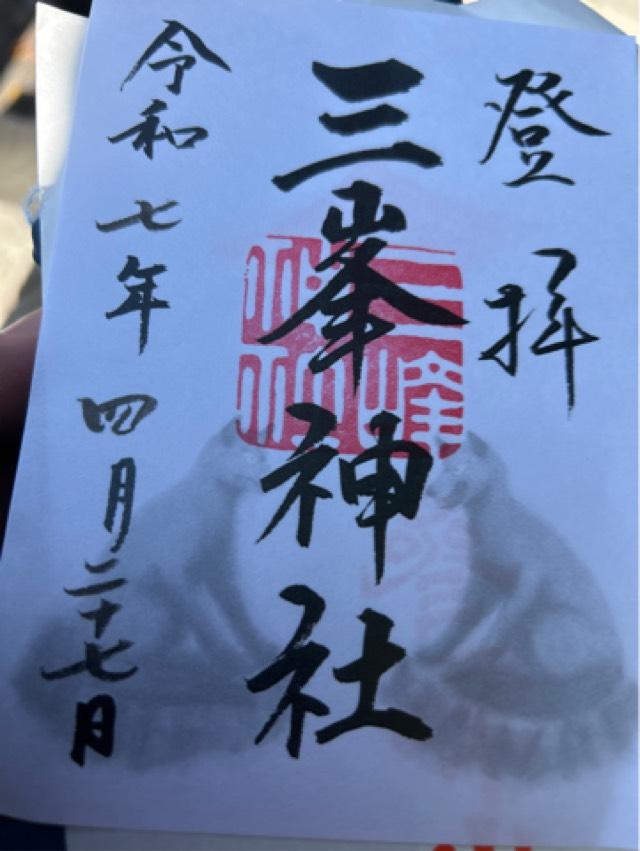 登拝
三峯神社
令和七年四月二十七日